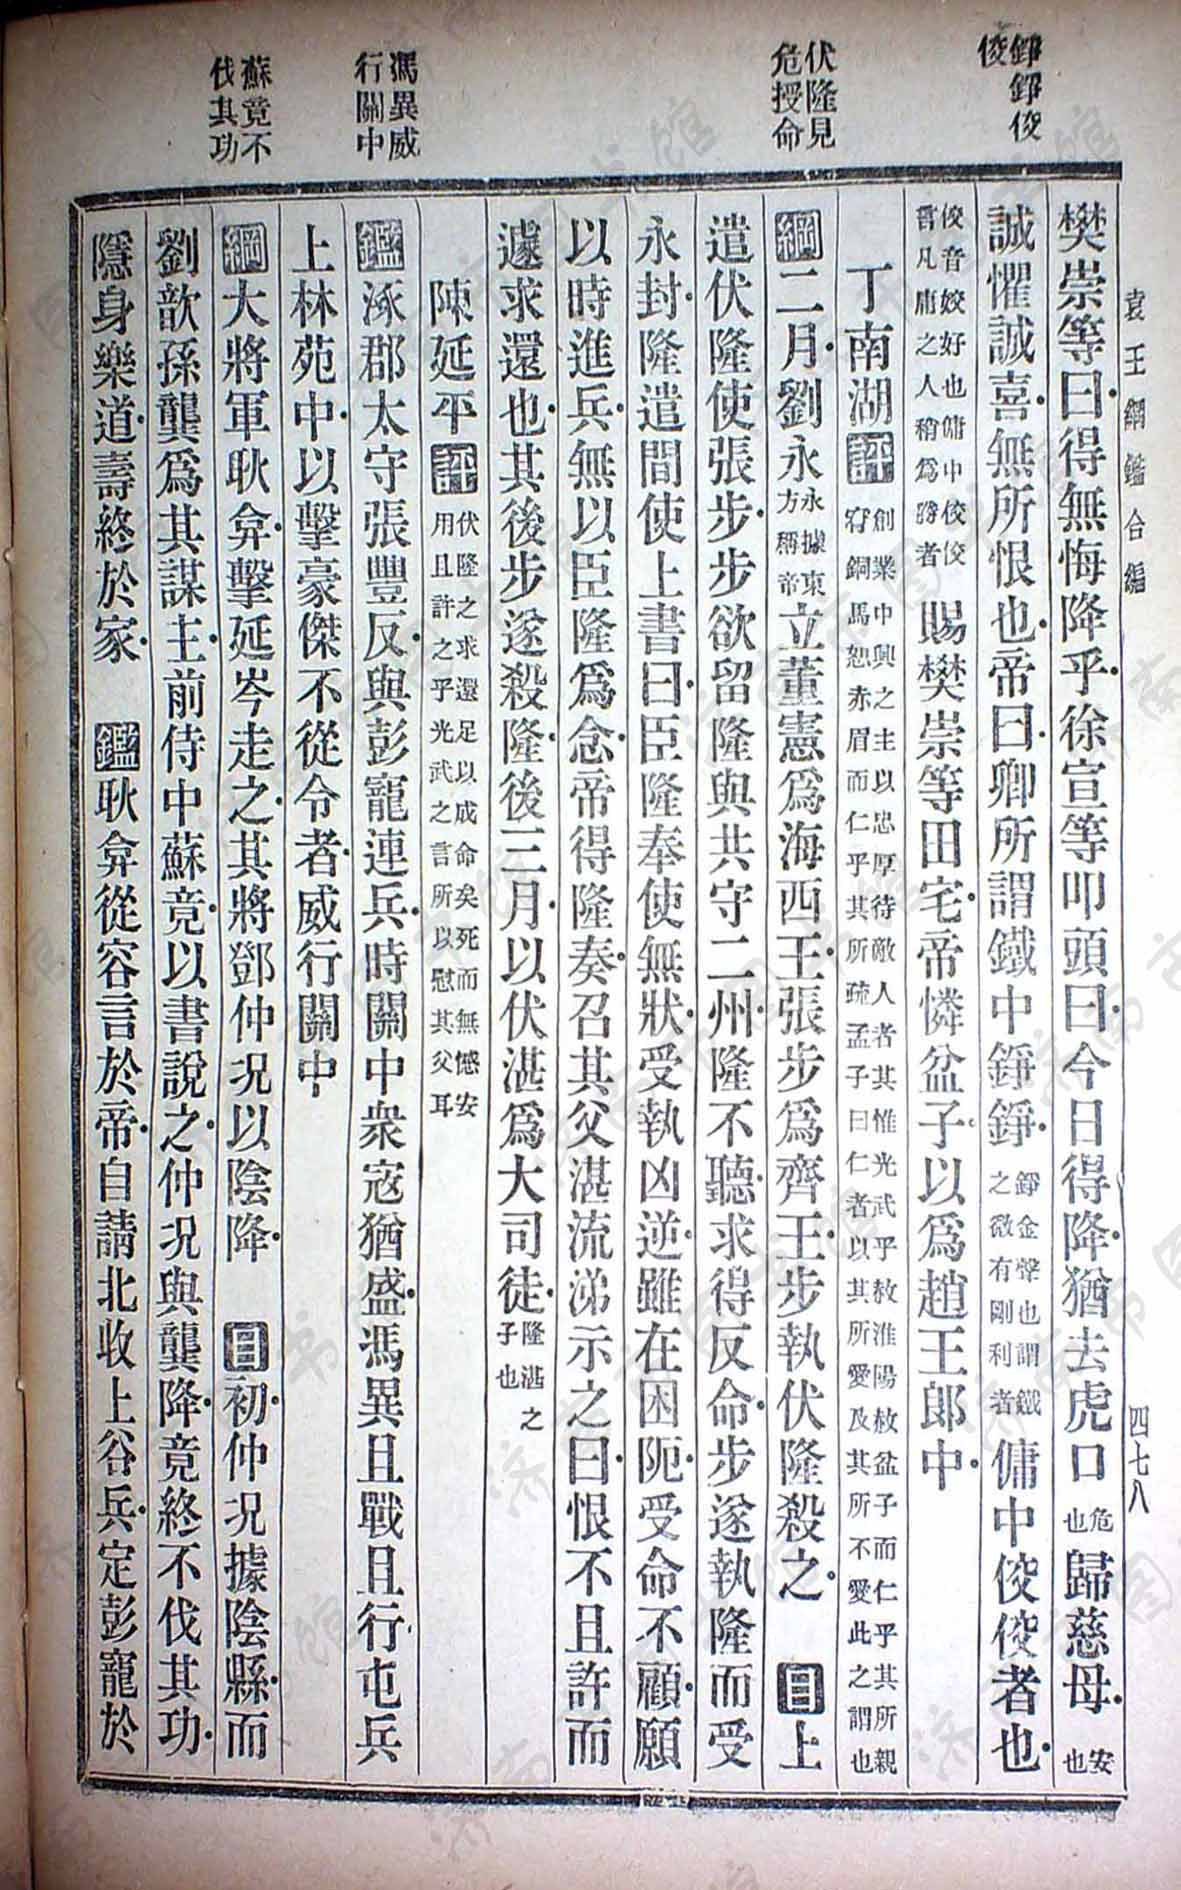 袁王綱鑑合編
四七八
錚錚佼
佼
伏隆見
危授命
馮異威
行關中
蘇竟不
伐其功
樊崇等曰得無悔降乎徐宣等叩頭曰今日得降猶去虎口危也歸慈母安也
誠懼誠喜無所恨也帝曰卿所謂鐵中錚錚錚金聲也謂鐵之微有剛利者傭中佼佼者也
佼音姣好也傭中佼佼言凡庸之人稍爲勝者賜樊崇等田宅帝憐盆子以爲趙王郎中
丁南湖評創業中興之主以忠厚待敵人者其惟光武乎赦淮陽赦盆子而仁乎其所親封銅馬恕赤眉而仁乎其所疏孟子曰仁者以其所愛及其所不愛此之謂也
綱二月劉永永據東方稱帝立董憲爲海西王張步爲齊王步執伏隆殺之 目上
遣伏隆使張步步欲留隆與共守二州隆不聽求得反命步遂執隆而受
永封隆遣間使上書曰臣隆奉使無狀受執凶逆雖在困阨受命不顧願
以時進兵無以臣隆爲念帝得隆奏召其父湛流涕示之曰恨不且許而
遽求還也其後步遂殺隆後三月以伏湛爲大司徒隆湛之子也
陳延平評伏隆之求還足以成命矣死而無憾安用且許之乎光武之言所以慰其父耳
鑑涿郡太守張豐反與彭寵連兵時關中衆寇猶盛馮異且戰且行屯兵
上林苑中以擊豪傑不從令者威行關中
綱大將軍耿弇擊延岑走之其將鄧仲况以陰降 目初仲况據陰縣而
劉歆孫龔爲其謀主前侍中蘇竟以書說之仲况與龔降竟終不伐其功
隱身樂道壽終於家 鑑耿弇從容言於帝自請北收上谷兵定彭寵於